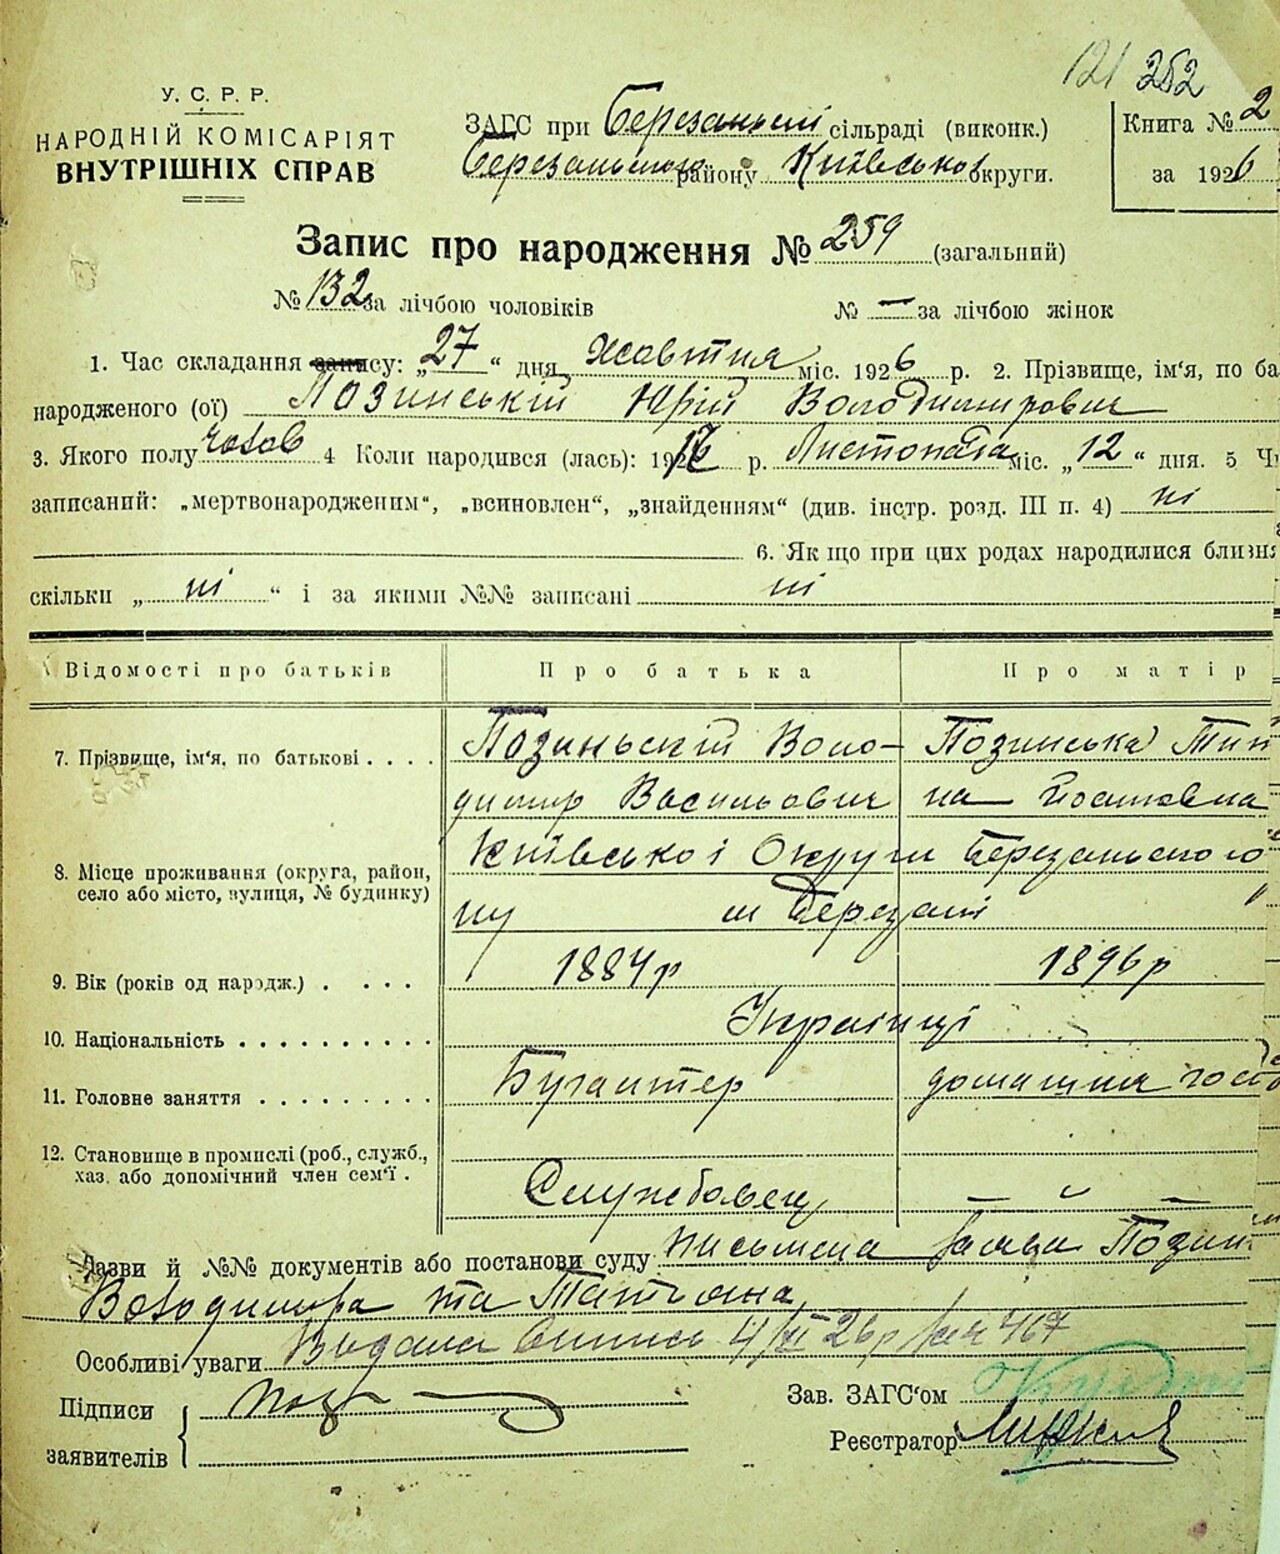 121 252
У. С. Р. Р.
НАРОДНІЙ КОМІСАРІЯТ
ВНУТРІШНІХ СПРАВ
ЗАГС при Березанській сільраді (виконк.)
Березанського району Київської округи.
Книга № 2
за 1926
Запис про народження № 259 (загальний)
№ 132 за лічбою чоловіків № — за лічбою жінок
1. Час складання запису: „27“ дня Жовтня міс. 1926 р. 2. Прізвище, ім‘я, по ба
народженого (ої) Позинський Юрій Володимирович
3. Якого полу чолов 4 Коли народився (лась): 1916 р. Листопада міс. „12“ дня. 5 Ч
записаний: „мертвонародженим“, „всиновлен“, „знайденням“ (див. інстр. розд. III п. 4) ні
6. Як що при цих родах народилися близн
скільки „ні“ і за якими №№ записані ні
Відомості про батьків Про батька Про матір
7. Прізвище, ім‘я, по батькові . . . . Позиньский Воло- Позинська Тит
димир Васильович на
8. Місце проживання (округа, район, Київської Округи Березанського
село або місто, вулиця, № будинку) ну м Березані "
9. Вік (років од народж.) . . . . 1884 р 1896 р
10. Національність . . . . . . . . . . Українці
11. Головне заняття . . . . . . . . . Бугалтер домашня госп
12. Становище в промислі (роб., служб.,
хаз. або допомічний член сем‘ї . Службовец — —
Назви й №№ документів або постанови суду письмена заява Позин
Володимира та Тетяна
Особливі уваги Видана Випись 4/XI 26 р за № 467
Підписи Зав. ЗАГС‘ом
заявителів Реєстратор